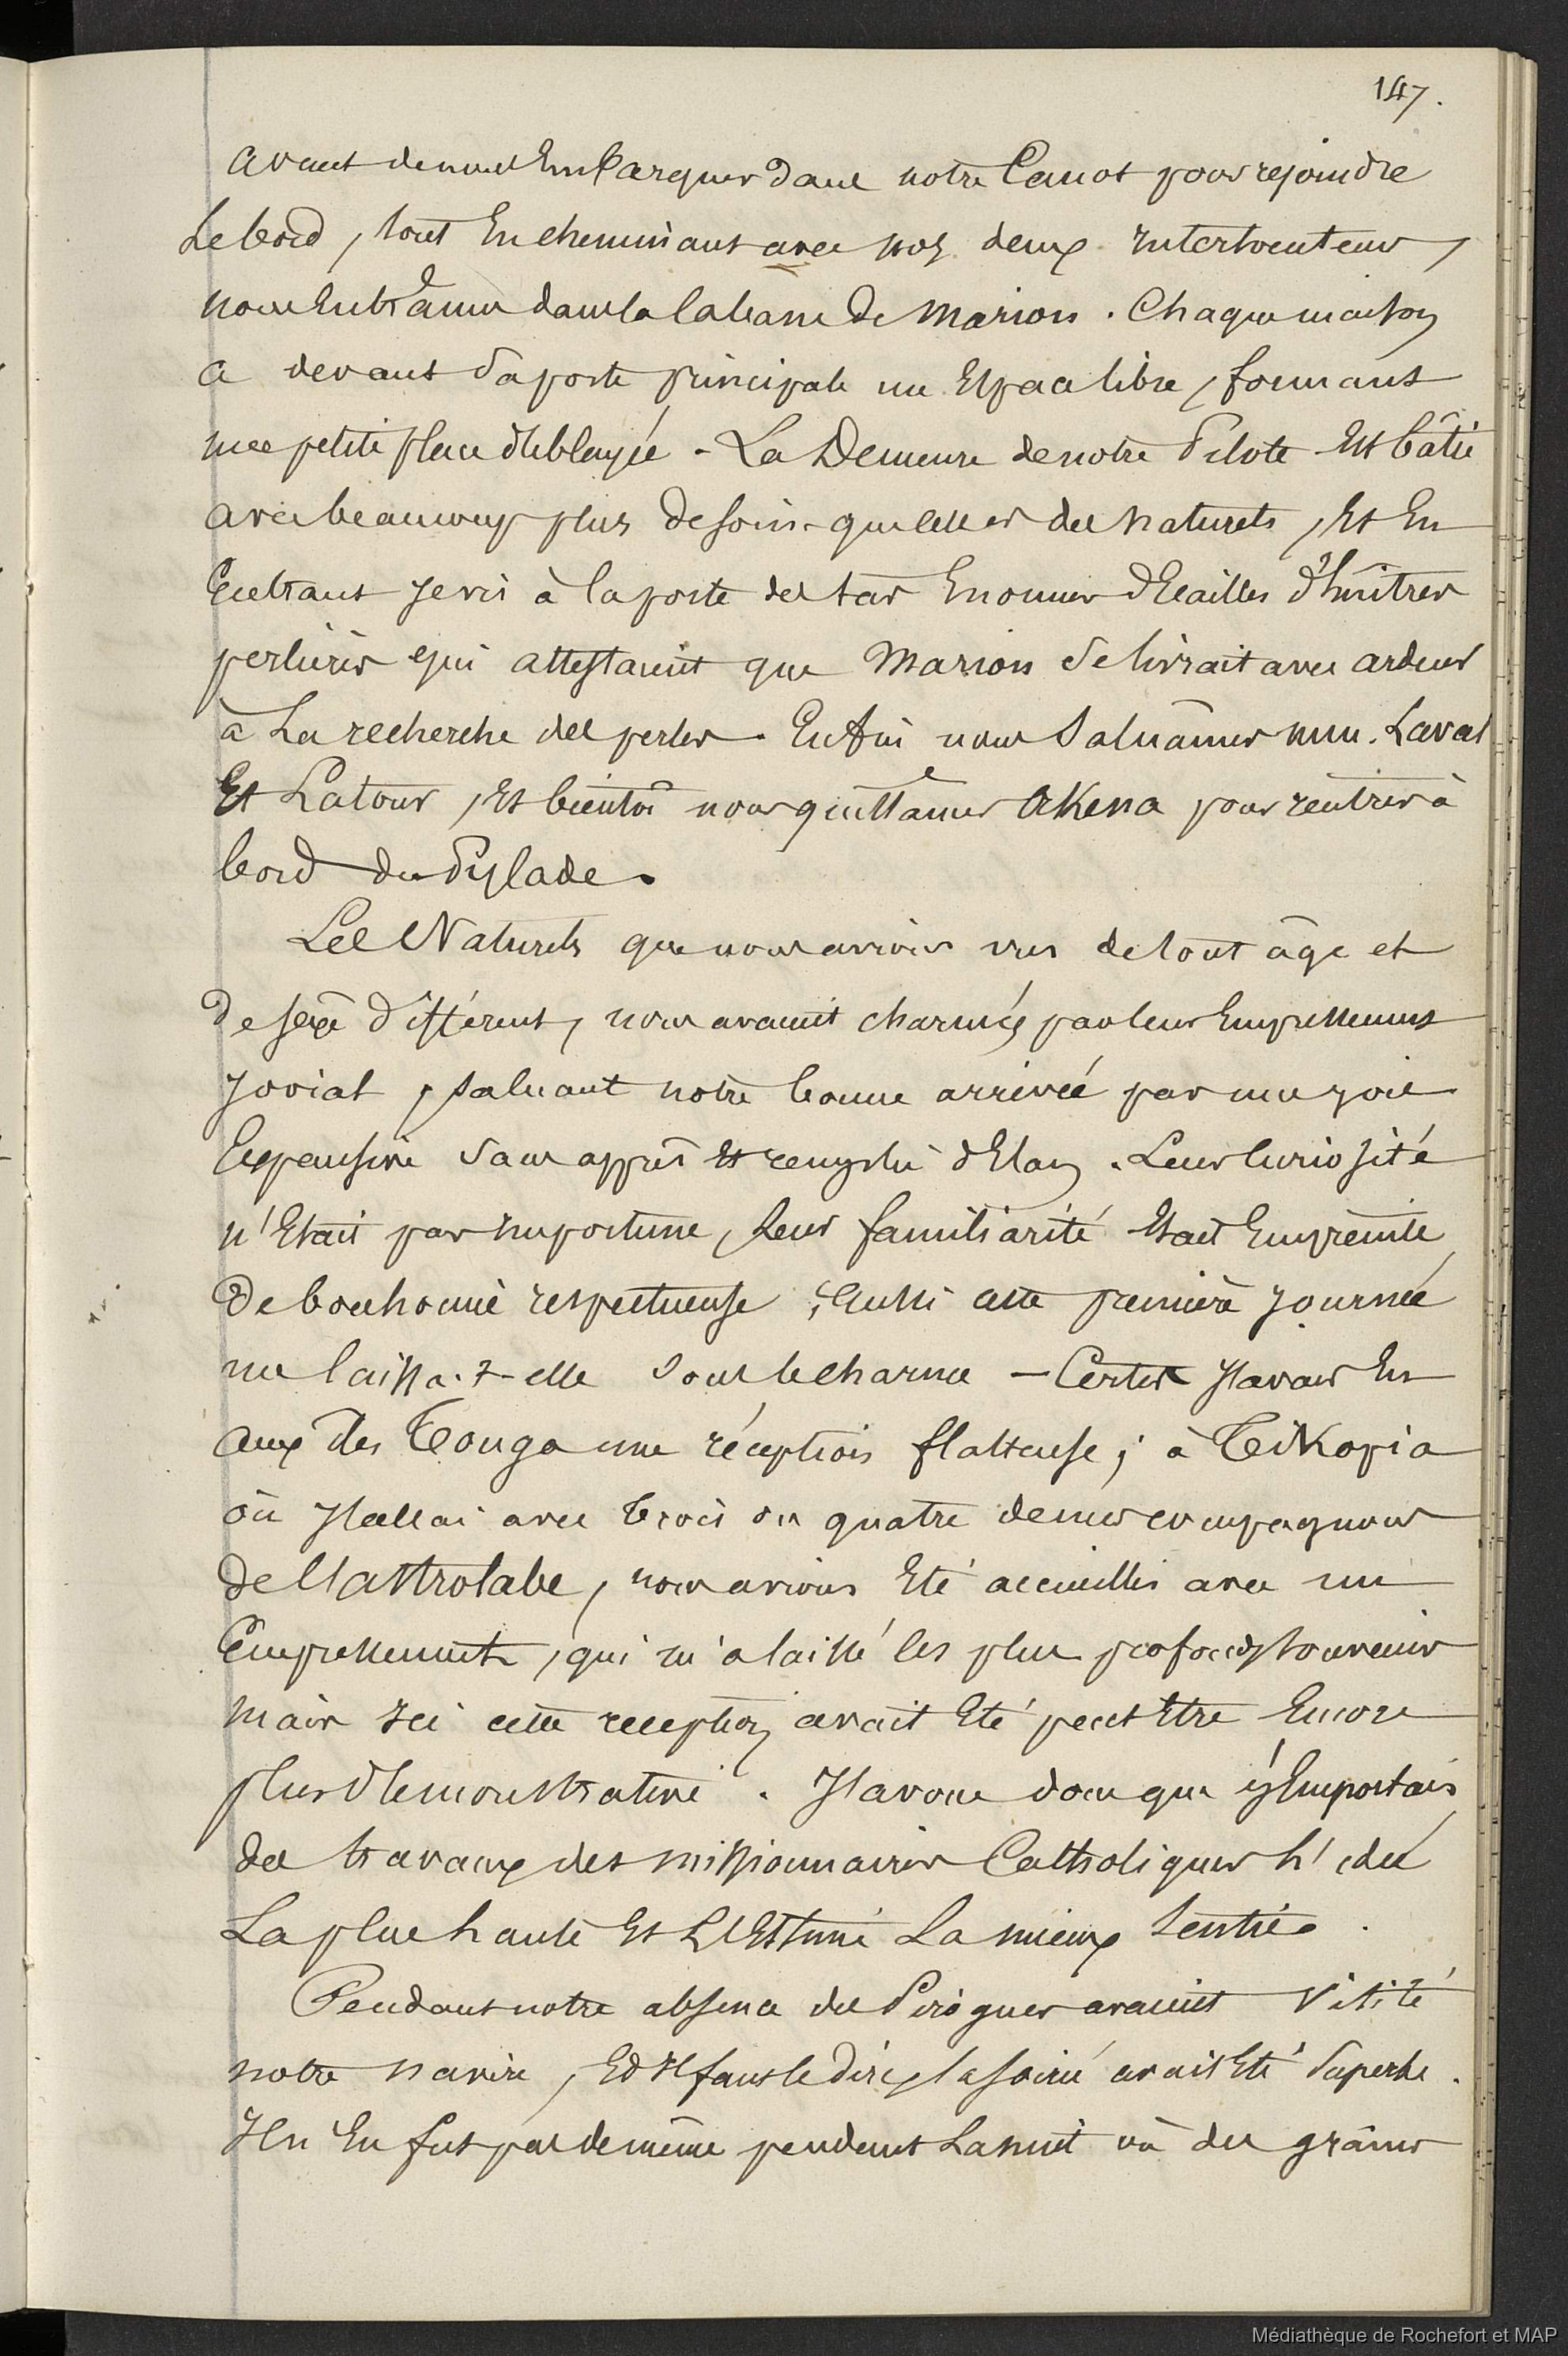 147.
avant de nous Embarquer dans notre Canot pour rejoindre
Le bord, tout En cheminant avec nos deux interlocuteurs,
nous Entrâmes dans la Cabane De Marion. Chaque maison
a devant sa porte principale un Espace libre, formant
une petite place déblayée - La Demeure de notre Pilote Est bâtie
avec beaucoup plus de soins que celles des naturels, Et En
Entrant je vis à la porte des tas Enormes d'Ecailles d'huîtres
perlières qui attestaient que Marion se livrait avec ardeur
à La recherche des perles. Enfin nous Saluâmes mm. Laval
Et Latour, Et bientôt nous quittâmes Akena pour rentrer à
bord du Pylade.
Les Naturels que nous avions vus de tout âge et
De sexe différent, nous avaient charmés par leur Empressement
jovial, saluant notre bonne arrivée par une joie
Expansive sans apprêt Et remplie d'Elan. Leur Curiosité
n'Etait pas importune, leur familiarité Etait Empreinte
De bonhomie respectueuse; Aussi cette première journée
me laissa-t-elle sous le charme - Certes j'avais Eu
aux îles Tonga une réception flatteuse; à Tikopia
où j'allai avec trois ou quatre de mes compagnons
de l'astrolabe, nous avions Eté accueillis avec un
Empressement, qui m'a laissé les plus profonds souvenirs
mais ici cette reception avait Eté peut Etre Encore
plus démonstrative. J'avoue donc que j'Emportais
des travaux des missionnaires Catholiques l'idée
La plus haute Et L'Estime La mieux Sentie.
Pendant notre absence des Pirogues avaient visité
notre navire, Et il faut le Dire, la soirée avait Eté Superbe.
Il n'En fut pas de même pendant La nuit où des grains